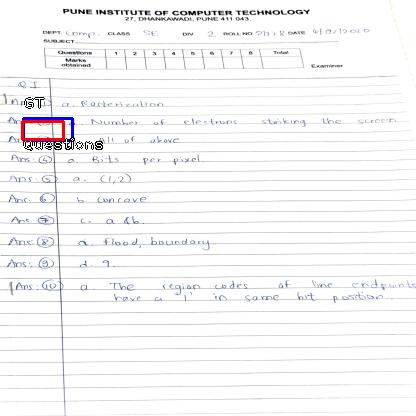 PUNE INSTITUTE OF COMPUTER TECHNOLOGY
27, DHANKAWADI, PUNE 411 043.
DEPT. Comp. CLASS SE DIV 2 ROLL NO. DATE
SUBJECT
Questions 1 2 3 4 5 6 7 8 Total
Marks obtained
Examiner
Q I
GT
a. Rasterization
Number of electrons striking the screen
All of above
Questions
Ans: 4 a. Bits per pixel
Ans: 5 a. (1,2)
Ans: 6 b. concave
Ans: 7 c. a & b.
Ans: 8 a. flood, boundary.
Ans: 9 d. 9.
Ans: 10 a The region codes of line endpoints
have a '1' in same bit position.